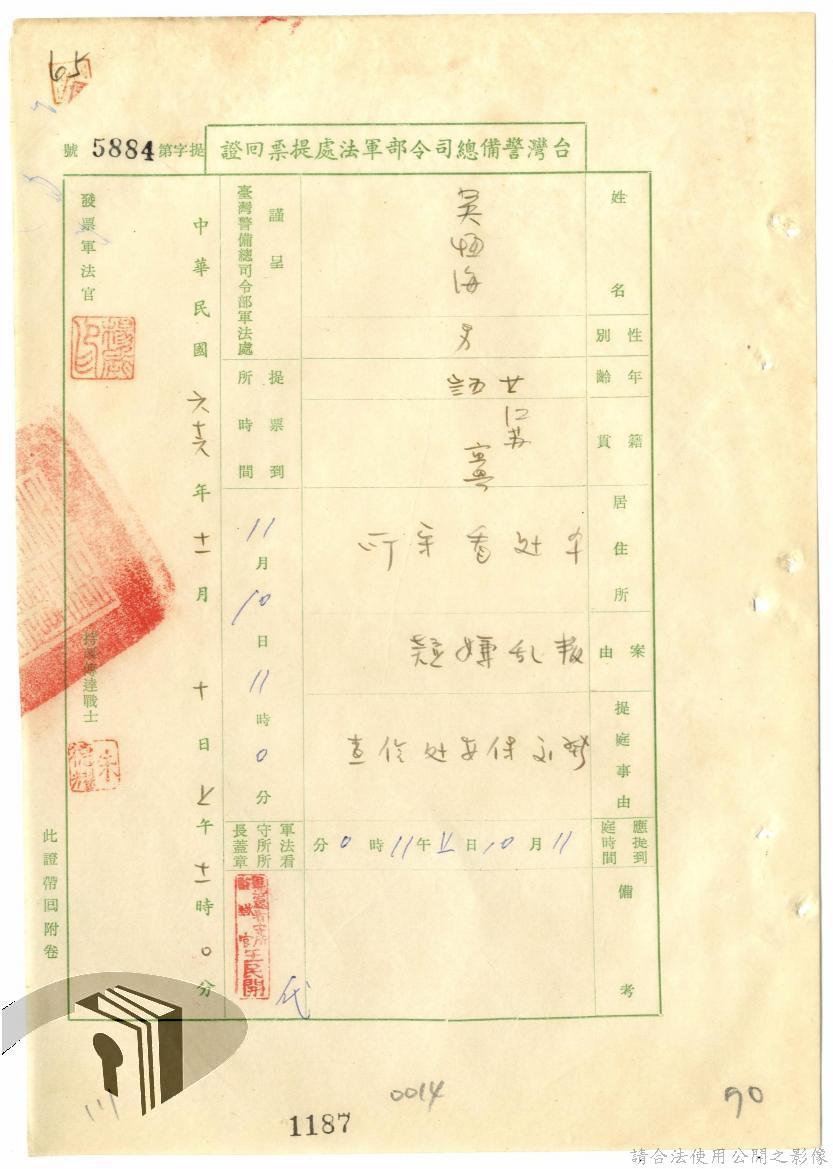 65
台灣警備總司令部軍法處提票回證
提字第5884號
姓名
吳恆海
性別
男
年齡
廿
籍貫
江苏
居住所
本处看守所
案由
叛乱嫌疑
提庭事由
發交保安处偵查
應提到庭時間
11月10日上午11時0分
備考
謹呈
臺灣警備總司令部軍法處
提票到所時間
11月10日11時0分
軍法看守所所長蓋章
王民開
代
中華民國六十六年十一月十日上午十一時0分
發票軍法官
持票傳達戰士
此證帶回附卷
0014
90
1187
請合法使用公開之影像